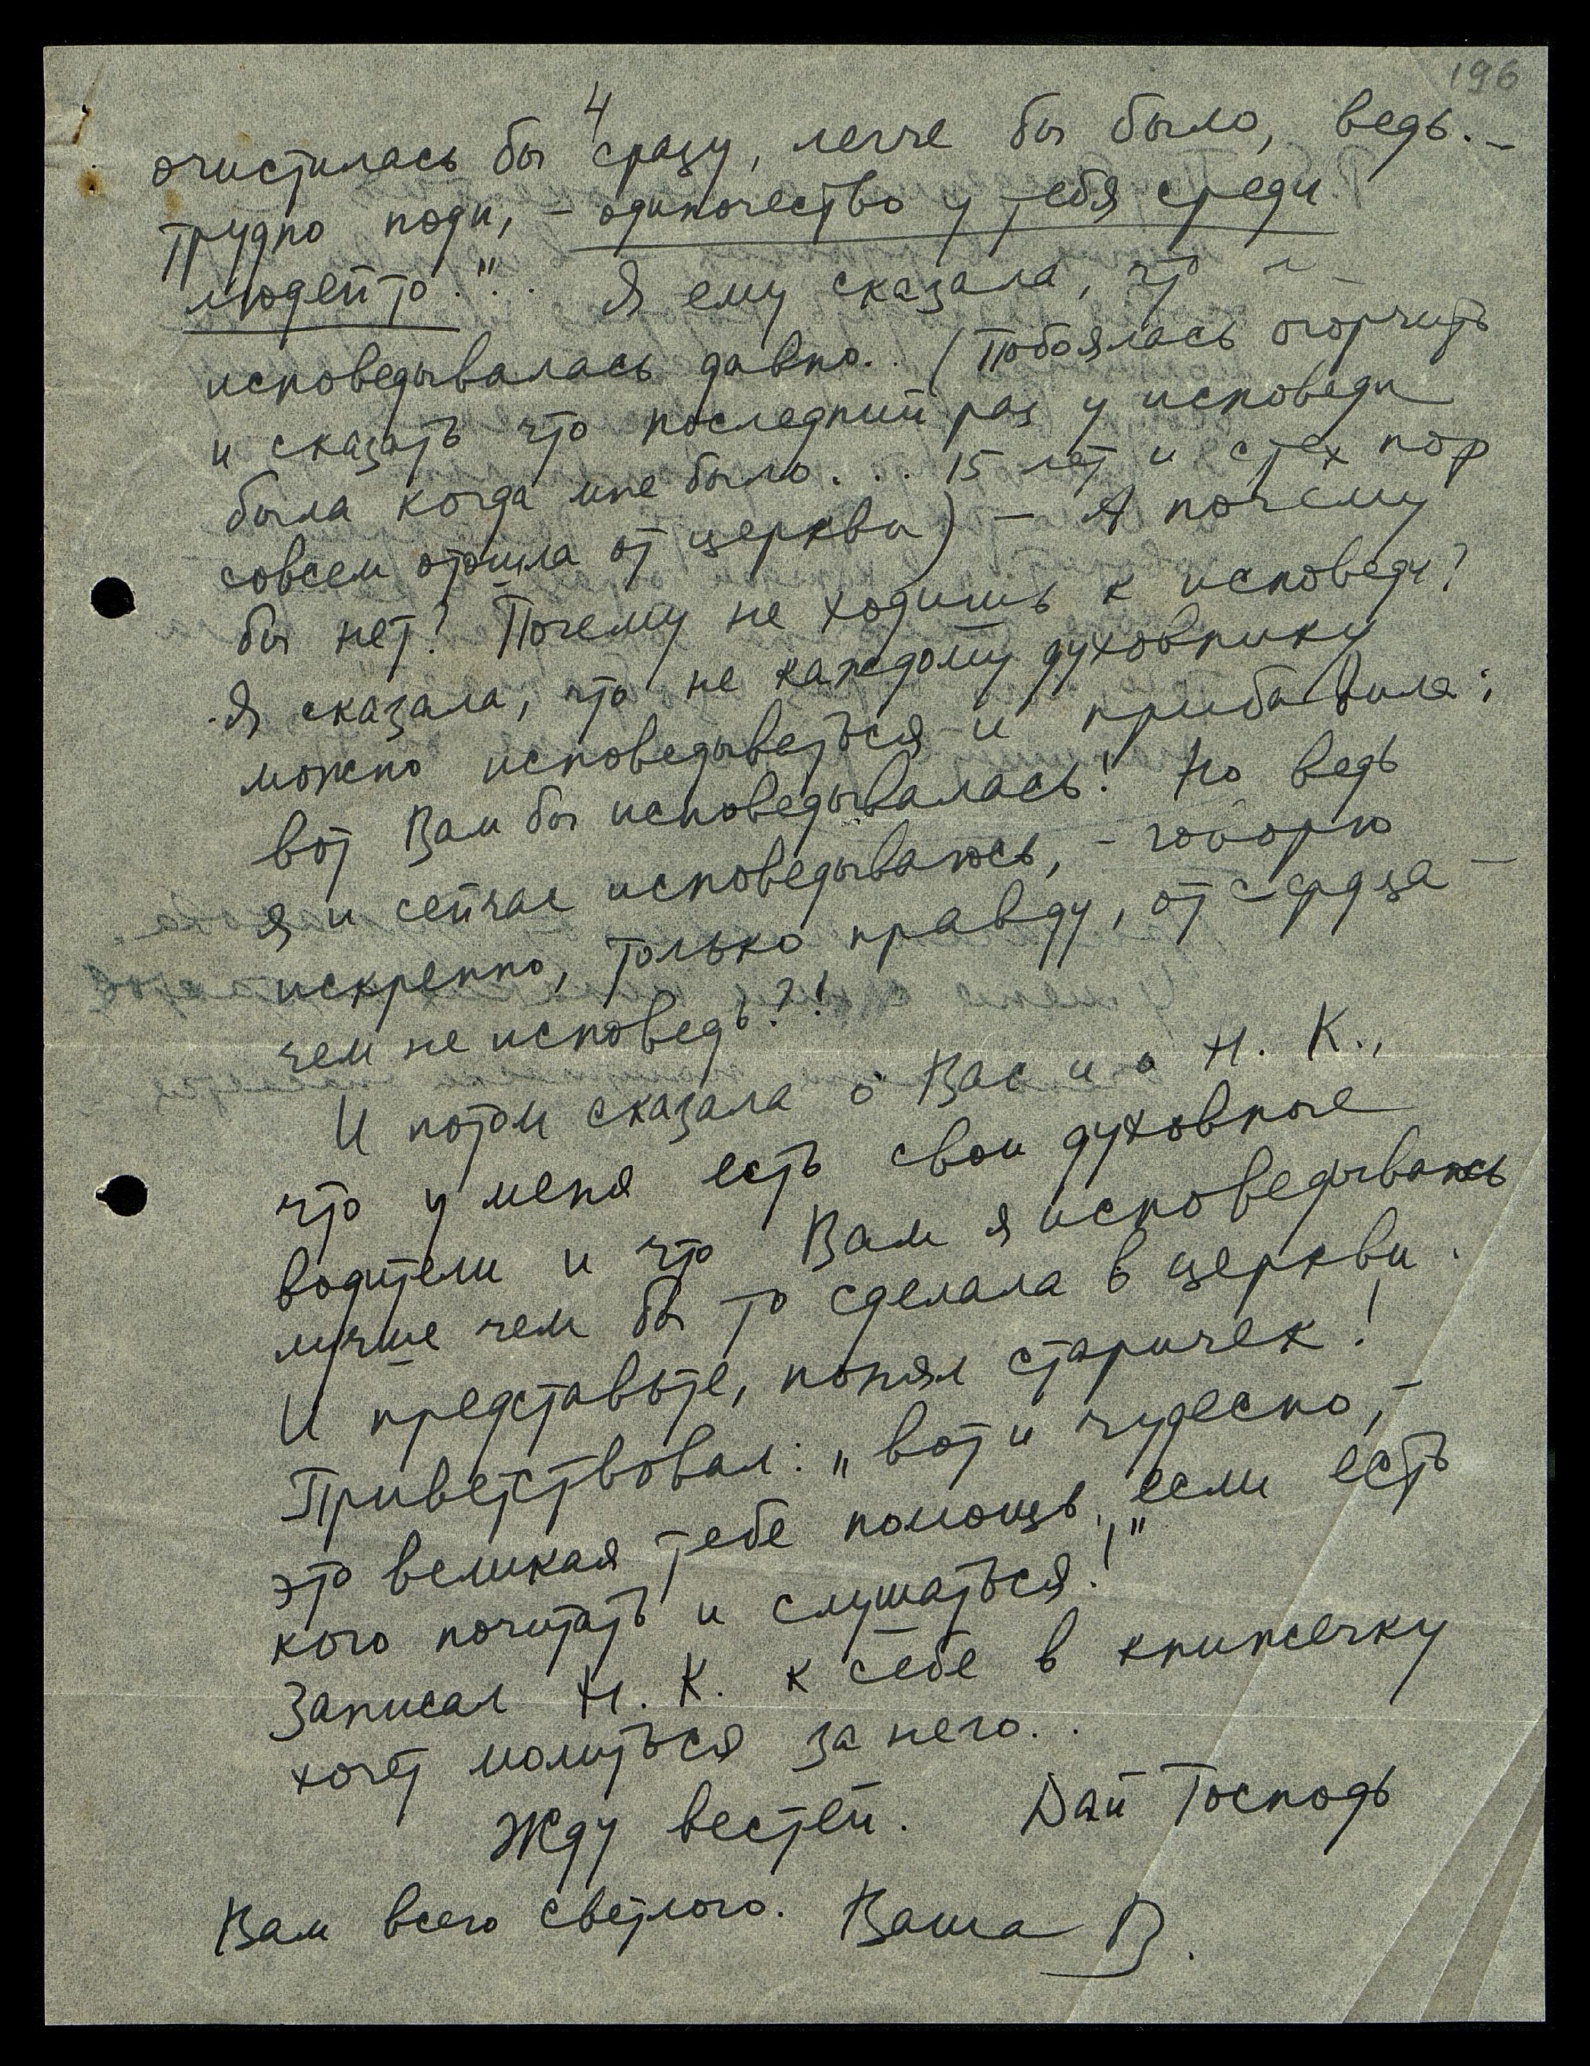 196
4
очистилась бы сразу, легче бы было, ведь. –
трудно поди, – одиночество у тебя среди
людей то."..  Я ему сказала, что
исповедывалась давно.. (Побоялась огорчить
и сказать что последний раз у исповеди
была когда мне было... 15 лет и с тех пор
совсем отошла от церкви) – А почему
бы нет? Почему не ходишь к исповеди?
Я сказала, что не каждому духовнику
можно исповедываться и прибавила:
вот Вам бы исповедывалась! Но ведь
я и сейчас исповедываюсь, – говорю
искренно, только правду, от сердца –
чем не исповедь?!
И потом сказала о Вас и о Н. К.,
что у меня есть свои духовные
водители и что Вам я исповедываюсь
лучше чем бы то сделала в церкви.
И представьте, понял старичек!
Приветствовал: „вот и чудесно, –
это великая тебе помощь, если есть
кого почитать и слушаться!"
Записал Н. К. к себе в книжечку
хочет молиться за него..
Жду вестей. Дай Господь
Вам всего светлого. Ваша В.